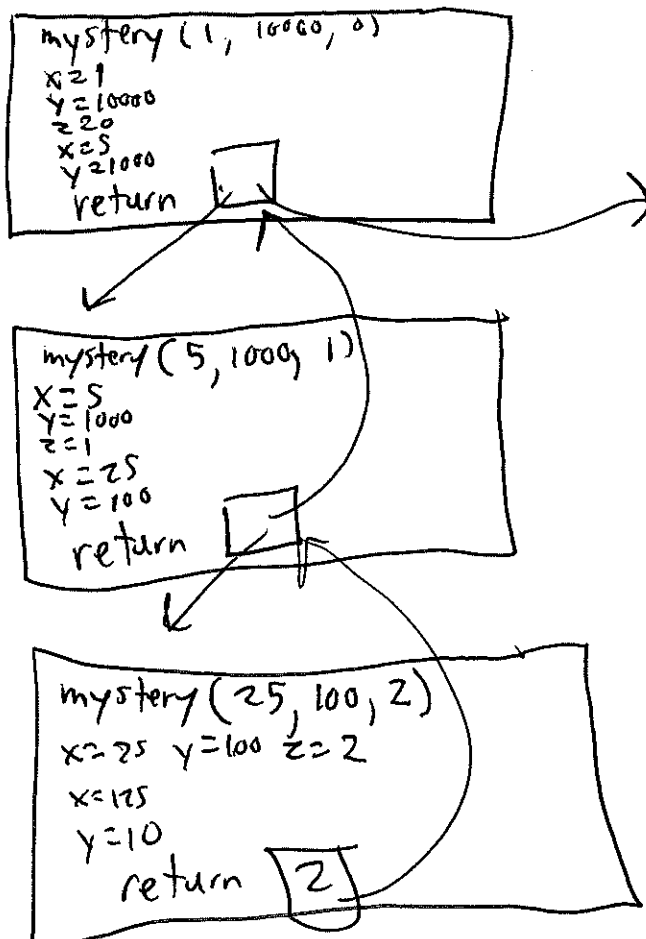 mystery (1, 10000, 0)
x=1
y=10000
z=0
x=5
y=1000
return
mystery (5, 1000, 1)
x=5
y=1000
z=1
x=25
y=100
return
mystery (25, 100, 2)
x=25 y=100 z=2
x=125
y=10
return 2